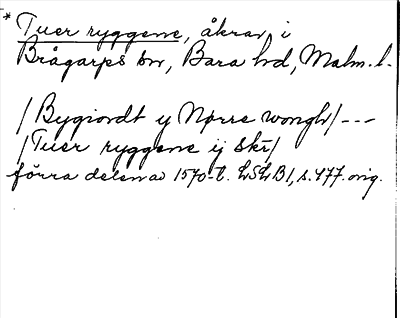 * Tuer ryggene, åkrar i
Brågarps sn, Bara hd, Malm. l.
/Bygiordt y Nørre wongh/ ---
/Tuer ryggene ij skr/
förra delen av 1570-t. LSLB1, s. 477. orig.